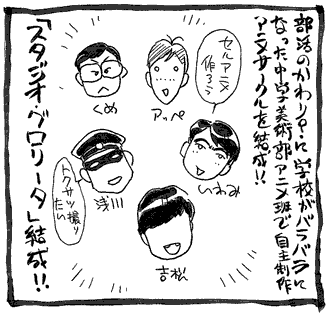 部活のかわり?に学校がバラバラに
なった中学美術部アニメ班で自主制作
アニメサークルを結成!!
セルアニメ
作ろう
アッペ
くめ
いわみ
浅川
トクサツ撮り
たい
吉松
「スタジオ・グロリータ」結成!!